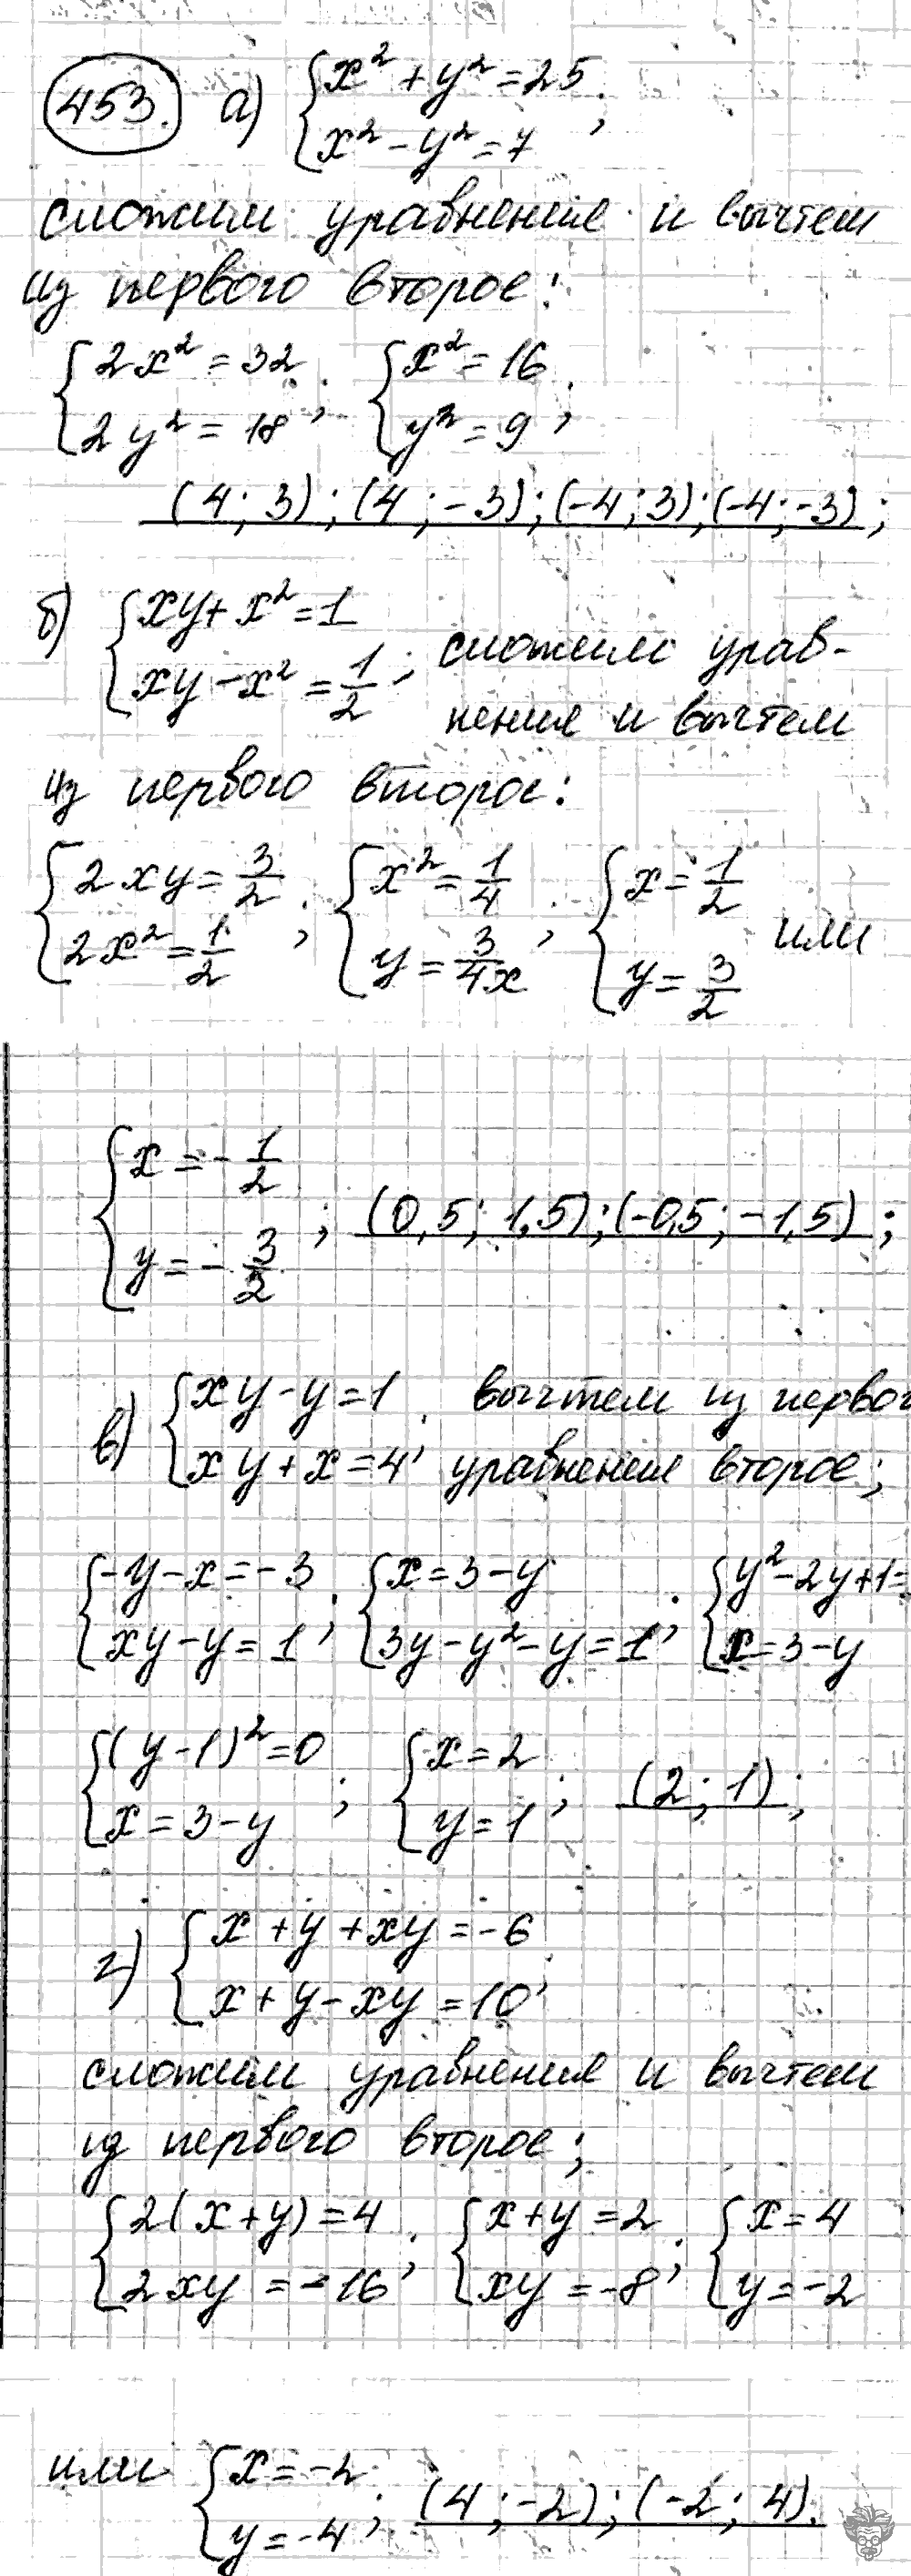 453. а) { x² + y² = 25
x² - y² = 7 ;
сложим уравнение и вычтем
из первого второе:
{ 2x² = 32 ; { x² = 16 ;
2y² = 18 y² = 9
(4; 3); (4; -3); (-4; 3); (-4; -3);
б) { xy + x² = 1
xy - x² = 1/2 ; сложим урав-
нения и вычтем
из первого второе:
{ 2xy = 3/2 ; { x² = 1/4 ; { x = 1/2 или
2x² = 1/2 y = 3/4x y = 3/2
{ x = -1/2
y = -3/2 ; (0,5; 1,5); (-0,5; -1,5);
в) { xy - y = 1 ; вычтем из первог
xy + x = 4 уравнения второе;
{ -y - x = -3 ; { x = 3 - y ; { y² - 2y + 1 =
xy - y = 1 3y - y² - y = 1 x = 3 - y
{ (y - 1)² = 0 ; { x = 2 ; (2; 1);
x = 3 - y y = 1
г) { x + y + xy = -6
x + y - xy = 10 ;
сложим уравнения и вычтем
из первого второе;
{ 2(x + y) = 4 ; { x + y = 2 ; { x = 4
2xy = -16 xy = -8 y = -2
или { x = -2
y = -4 ; (4; -2); (-2; 4).